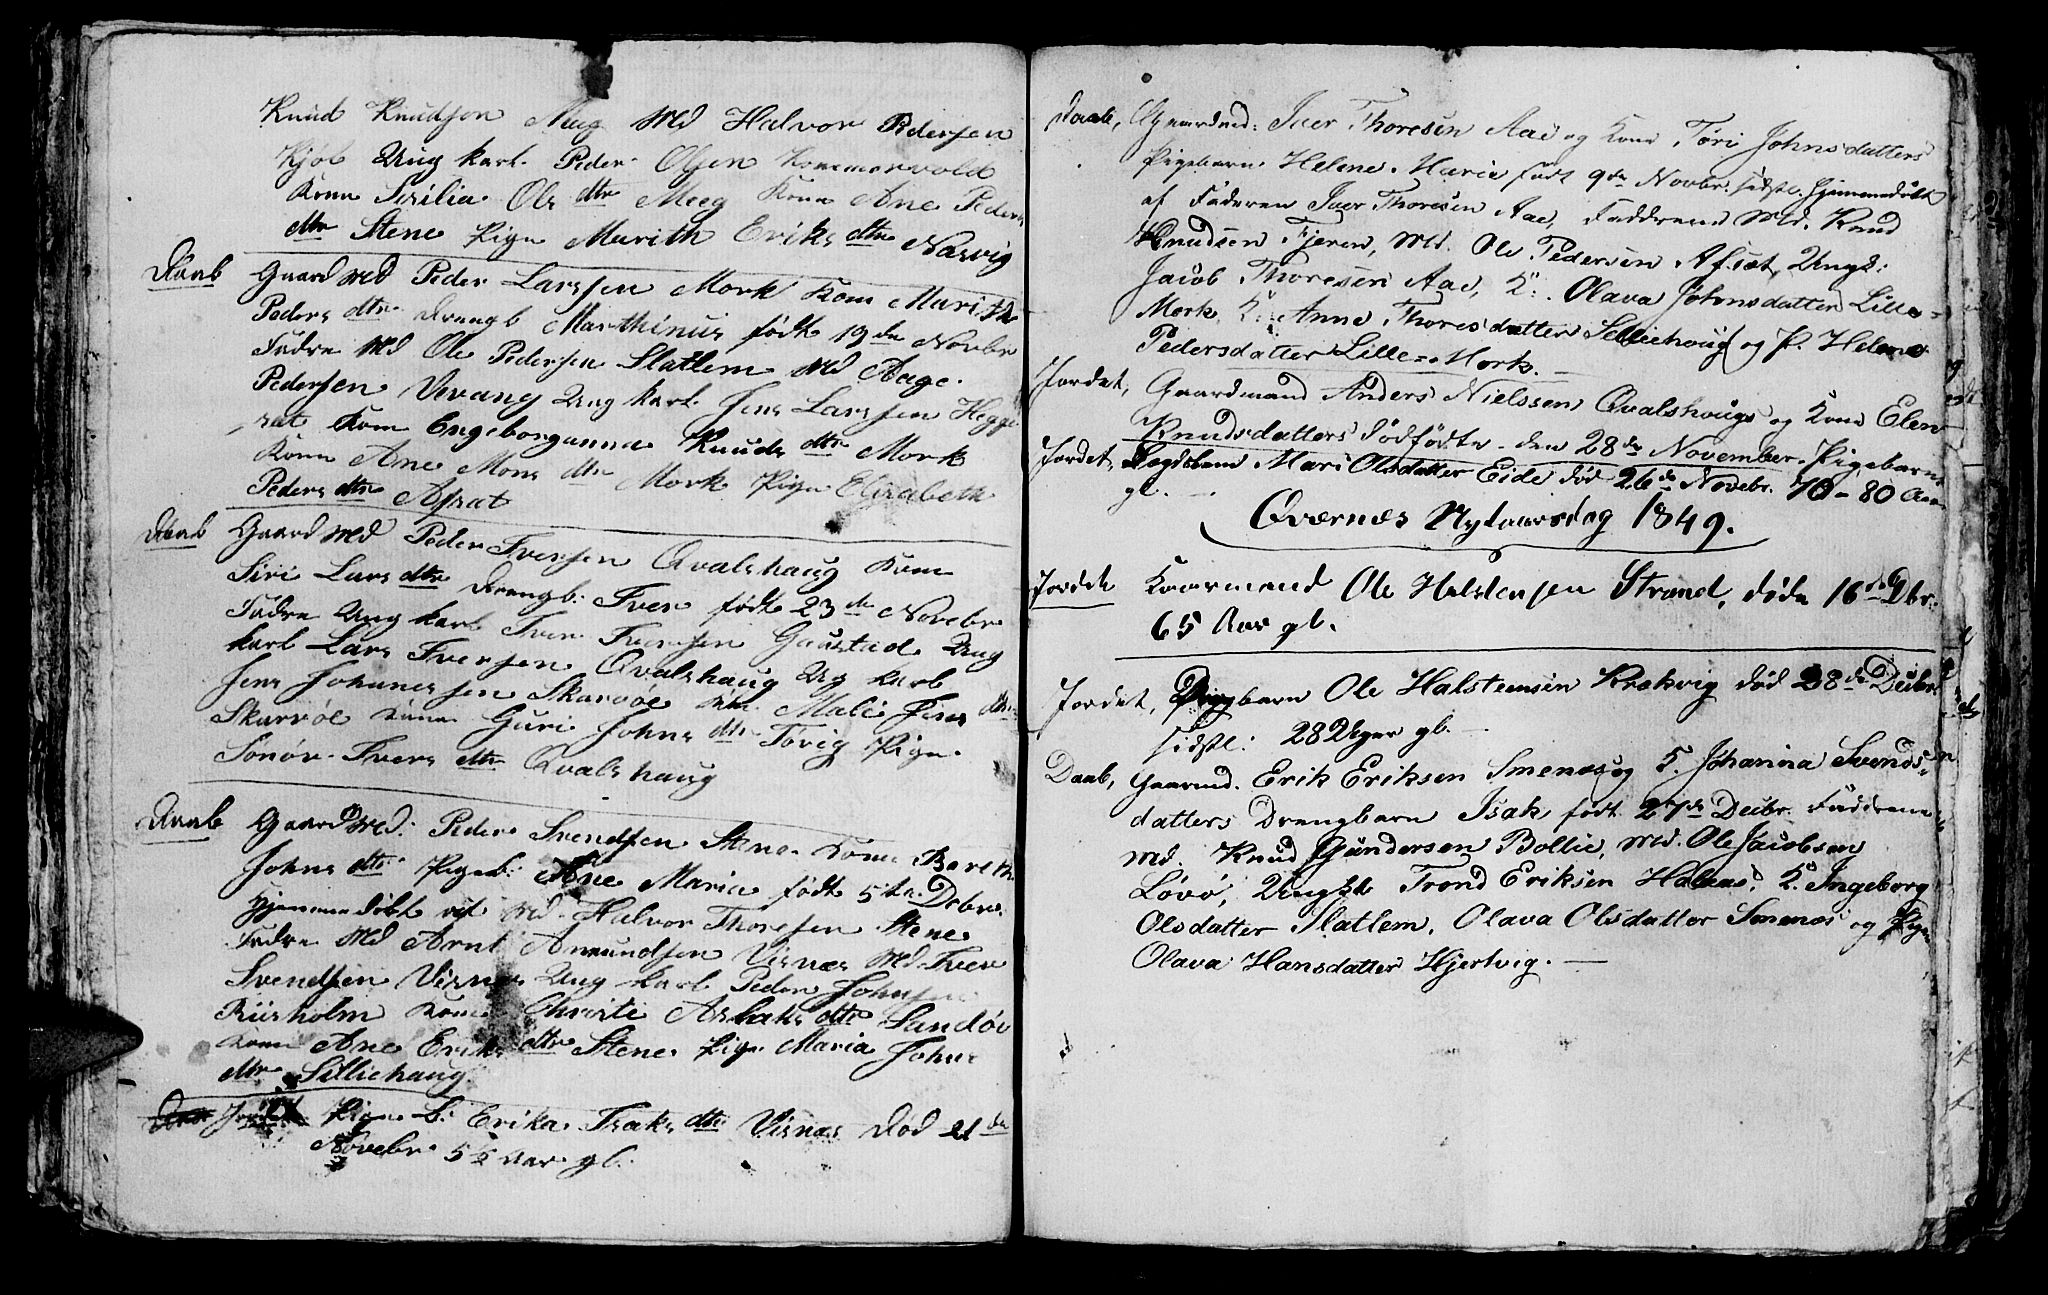 Knud Knudson Meeg Md Halvor Pedersen
Kjøl Ung karl Peder Olsen Hommervold
Kone Sisilia Ols dtr Meeg Kone Ane Peders
dtr Stene Pige Marith Eriks dtr Nasvig
Daab Gaard Md Peder Larssen Mork Kone Marith
Peders dtr Drengb Marthinus født 19de Novbr
Fadre Md Ole Pedersen Slatlem Md Aage
Pedersen Vevang Ung karl Jens Larssen Hegge
rat Kone Engeborganna Knuds dtr Mork
Kone Ane Mons dtr Mork Pige Elisabeth
Peders dtr Afsat
Daab Gaard Md Peder Iversen Qvalshaug Kone
Siri Lars dtr Drengb. Iver født 23de Novebr
Fadre Ung karl Iver Iversen Gaustad Ung
karl Lars Iversen Qvalshaug Ug karl
Jens Johanessen Skarvøe Mali Jens dtr
Skarvøe Kone Guri Johns dtr Tøvig Pige
Sonør Ivers dtr Qvalshaug
Daab Gaard Md: Peder Svendsen Stene Kone Bereth
Johns dtr Pigeb: Ane Maria født 5te Debr.
Hjemmedøbt ved Md. Halvor Thoresen Stene
Fadre Md Arnt Amundsen Visnæs Md. Iver
Svendsen Visnes Ung karl Peder Johnsen
Riisholm Kone Christi Aslaks dtr Sandøe
Kone Ane Eriks dtr Stene Pige Maria Johns
dtr Silliehaug
Jordet Pige B: Erika Isaks dtr Visnæs død 21de
Novebr 5 Aar gl.
Daab, Gaardmd: Iver Thoresen Aae og Kone Tøri Johnsdatters
Pigebarn Helene Marie født 9de Novbr. sidstl. hjemmedøbt
af Faderen Iver Thoresen Aae, Faddrene Md. Knud
Knudsen Fjeren, Md. Ole Pedersen Afsæt, Ungk:
Jacob Thoresen Aae, K: Olava Johnsdatter Lille-
Mork K: Anne Thoresdatter Selliehoug og P. Helene
Pedersdatter Lille-Mork. —
Jordet, Gaardmand Anders Nielssen Qvalshougs og Kone Elen
Knudsdatters dødfødte den 28de November Pigebarn
Jordet, Lægdslem Mari Olsdatter Eide død 26de Novebr. 70-80 Aar
gl. —
Qværnes Nytaarsdag 1849.
Jordet Kaarmand Ole Halstensen Strand, døde 16de Dbr:
65 Aar gl.
Jordet, Drengbarn Ole Halstensen Krækvig død 28de Decbr
sidstl: 28 Uger gl. —
Daab, Gaarmd. Erik Eriksen Smenæs og K. Johanna Svends-
datters Drengbarn Isak født 27de Decbr. Faddrene
Md. Knud Gundersen Bollie, Md. Ole Jacobsen
Løvø, Ungk Trond Eriksen Halsas, K. Ingeborg
Olsdatter Slatlem, Olava Olsdatter Smenæs og Pige
Olava Hansdatter Hjertvig. —